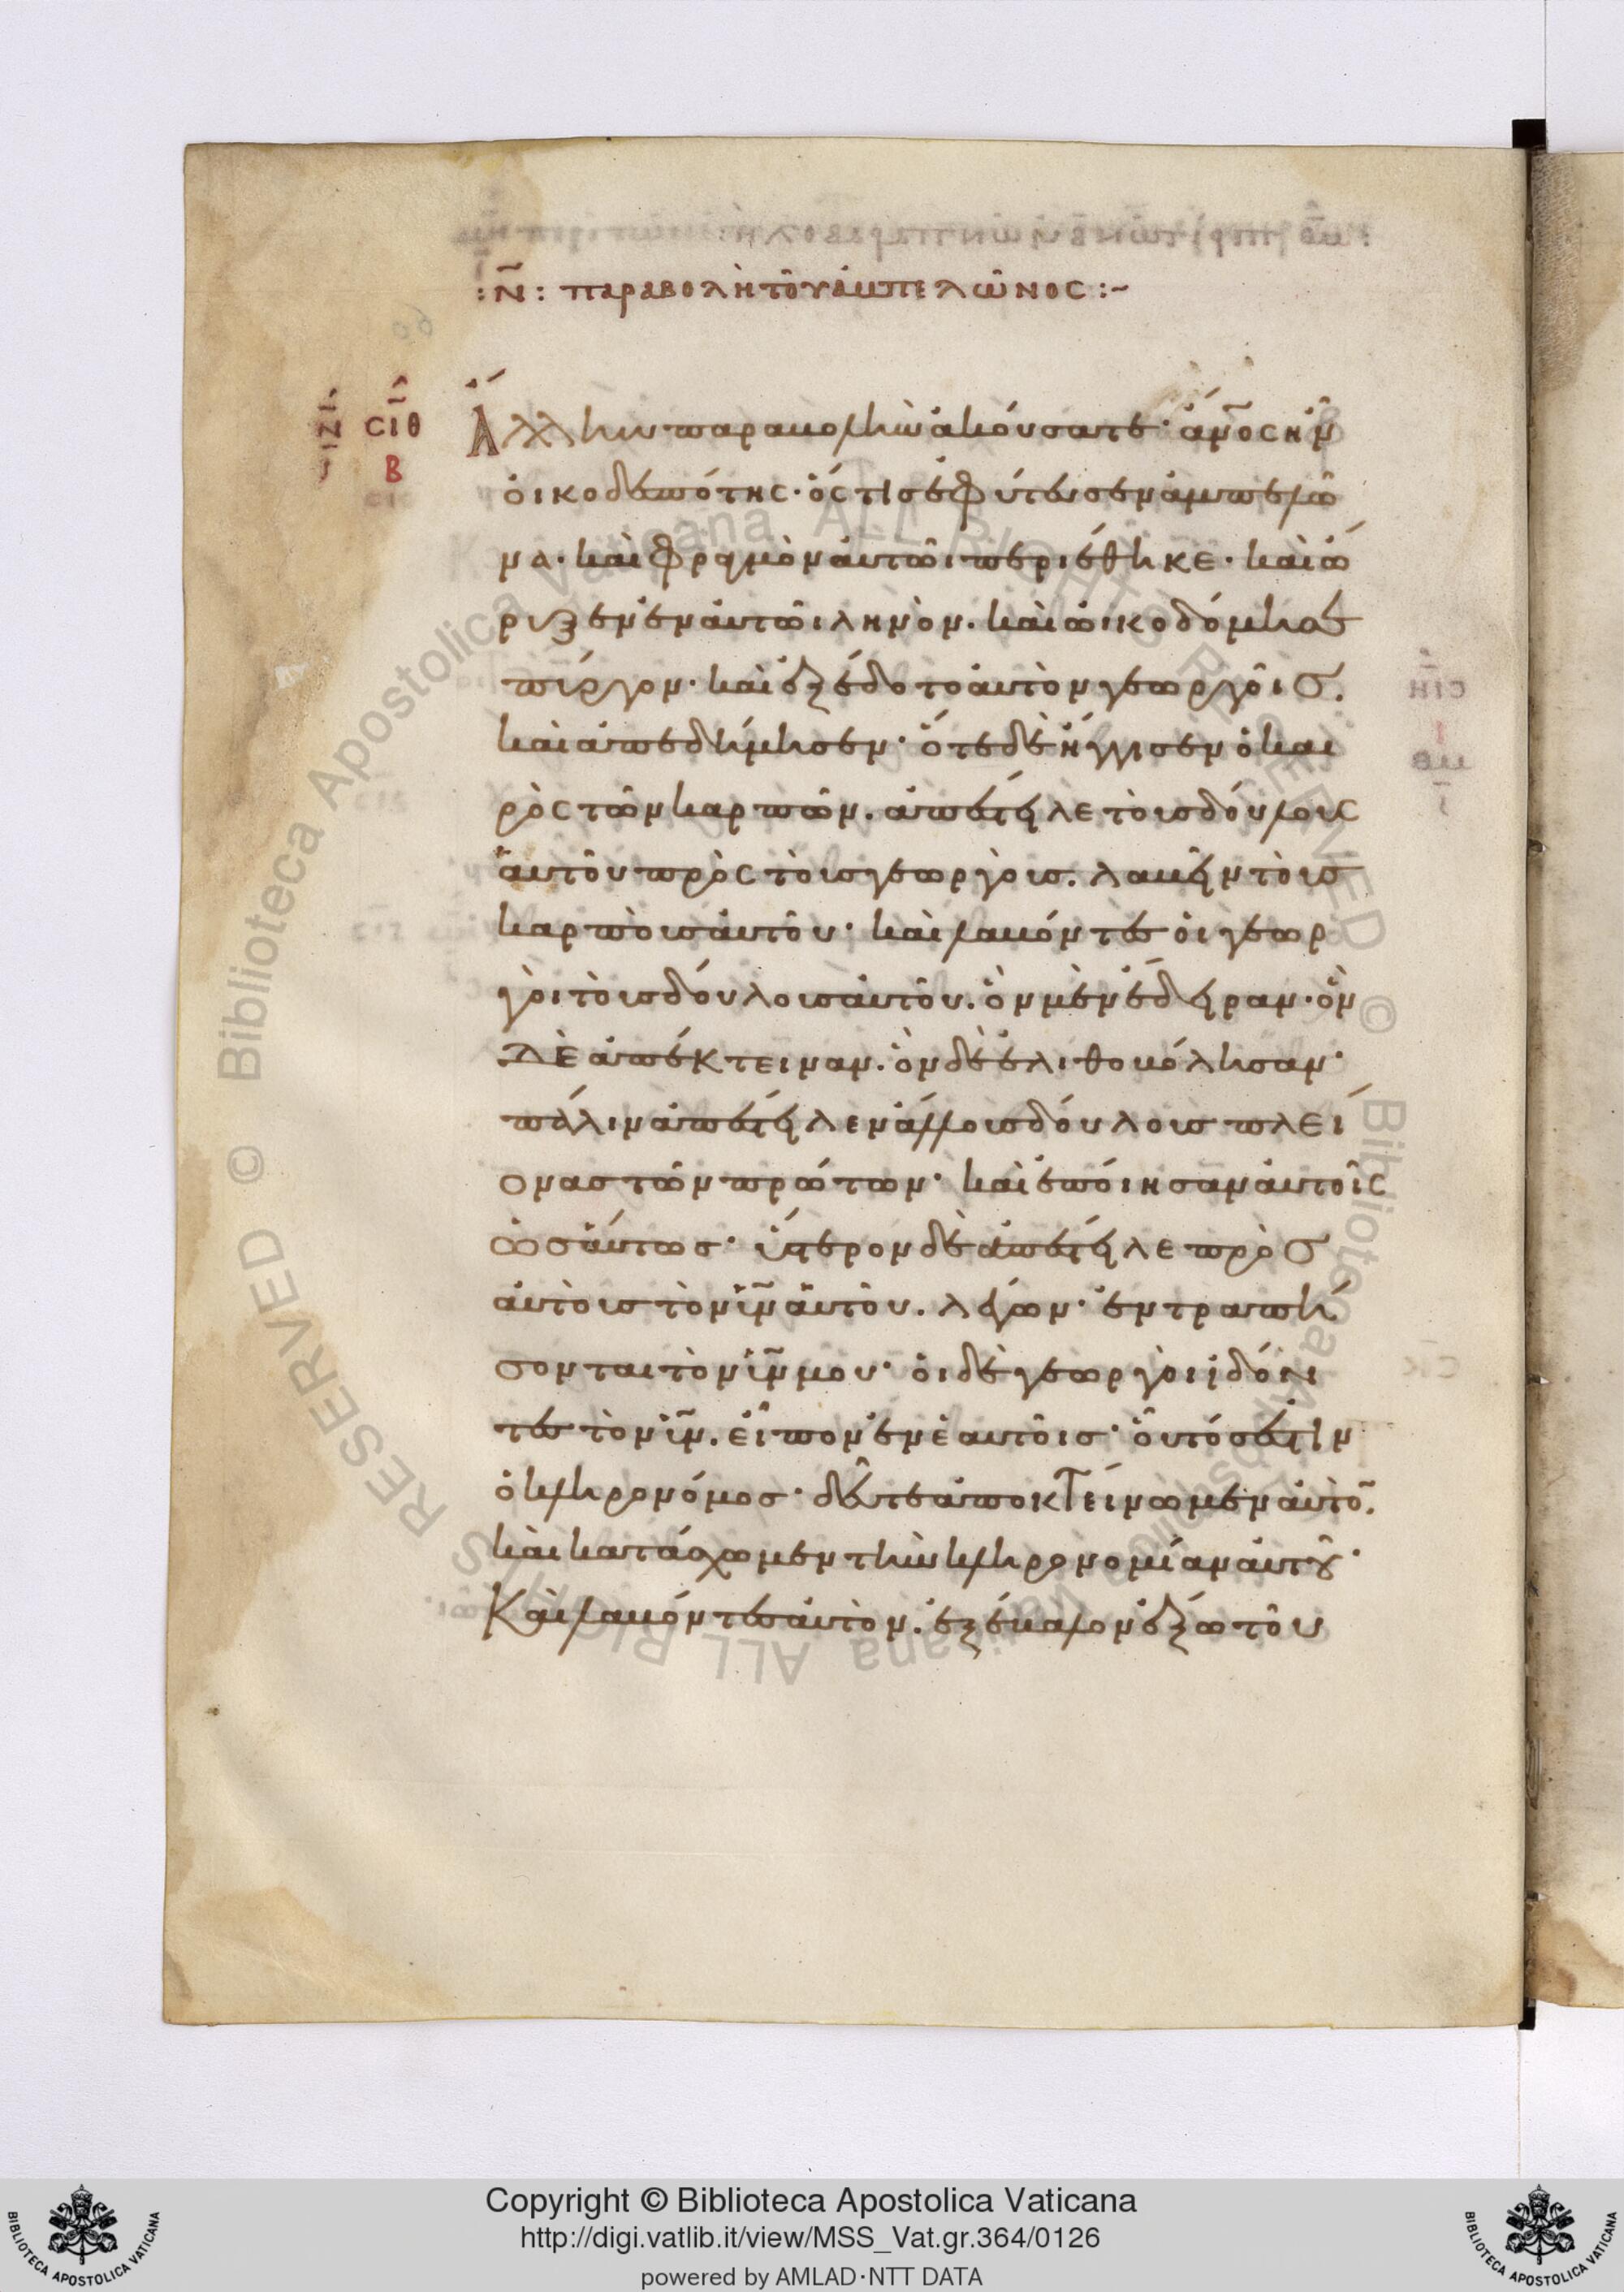 : Ν̃ : παραβολὴ τοῦ ἀμπελῶνος :~
σιθ
Β
Ἄλλην παραβολὴν ἀκούσατε· ἄν̅ος ἦν
οἰκοδεσπότης· ὅστις ἐφύτευσεν ἀμπελῶ
να· καὶ φραγμὸν αὐτῶι περιέθηκε· καὶ ὤ
ρυξεν ἐν αὐτῶι ληνὸν. καὶ ὠικοδόμησε
πύργον· καὶ ἐξέδοτο αὐτὸν γεωργοῖς.
καὶ ἀπεδήμησεν· ὅτε δὲ ἤγγισεν ὁ και
ρὸς τῶν καρπῶν. ἀπέστειλε τοὺς δούλους
αὐτοῦ πρὸς τοὺς γεωργοὺς. λαβεῖν τοὺς
καρποὺς αὐτοῦ· καὶ λαβόντες οἱ γεωρ
γοὶ τοὺς δούλους αὐτοῦ. ὃν μὲν ἔδειραν· ὃν
δὲ ἀπέκτειναν. ὃν δὲ ἐλιθοβόλησαν·
πάλιν ἀπέστειλεν ἄλλους δούλους πλεί
ονας τῶν πρώτων· καὶ ἐποίησαν αὐτοῖς
ὡσαύτως· ὕστερον δὲ ἀπέστειλε πρὸς
αὐτοὺς τὸν υἱ̅ν αὐτοῦ. λέγων· ἐντραπή
σονται τὸν υἱ̅ν μου· οἱ δὲ γεωργοὶ ἰδόν
τες τὸν υἱ̅ν. εἶπον ἐν ἑαυτοῖς· οὗτός ἐστιν
ὁ κληρονόμος· δεῦτε ἀποκτείνωμεν αὐτὸ̅.
καὶ κατάσχωμεν τὴν κληρονομίαν αὐτοῦ·
Καὶ λαβόντες αὐτὸν. ἐξέβαλον ἔξω τοῦ
© Biblioteca Apostolica Vaticana ALL RIGHTS RESERVED © Biblioteca Apostolica Vaticana ALL RIGHTS RESERVED
BIBLIOTECA APOSTOLICA VATICANA
Copyright © Biblioteca Apostolica Vaticana
http://digi.vatlib.it/view/MSS_Vat.gr.364/0126
powered by AMLAD·NTT DATA
BIBLIOTECA APOSTOLICA VATICANA